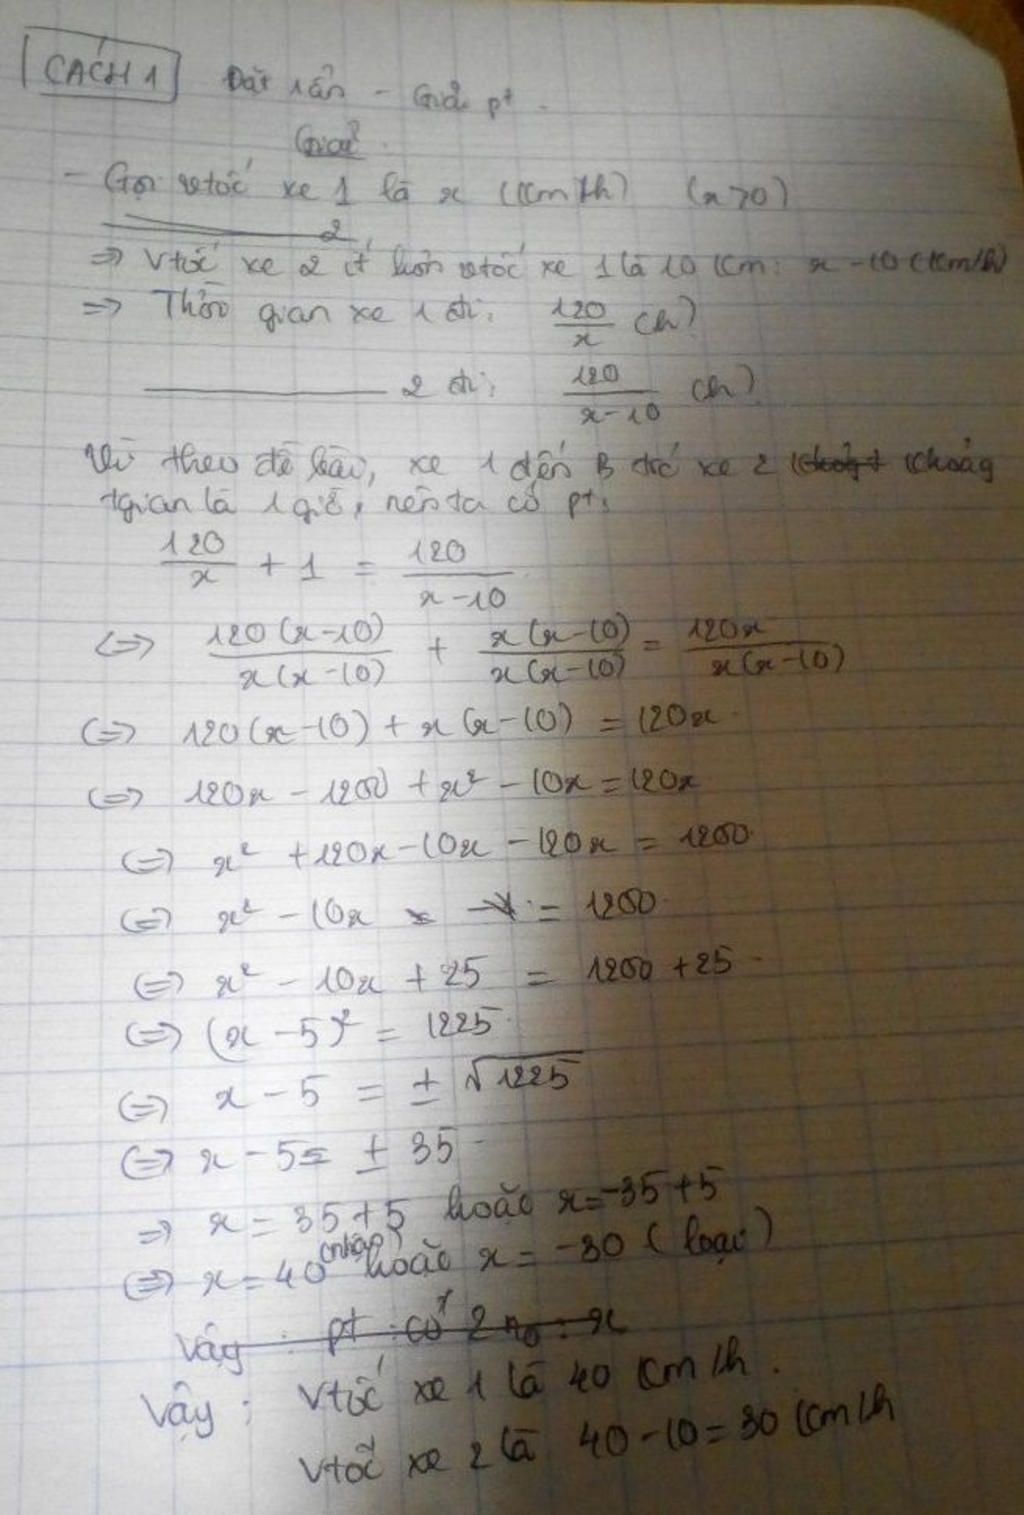 CÁCH 1 Đặt 1 ẩn - Giải pt.
Giải.
- Gọi vtốc xe 1 là x (km/h) (x>0)
2
=> Vtốc xe 2 ít hơn vtốc xe 1 là 10 km: x - 10 (km/h)
=> Thời gian xe 1 đi: 120/x (h)
2 đi: 120/(x-10) (h)
Vì theo đề bài, xe 1 đến B trc xe 2 khoảng
tgian là 1 giờ, nên ta có pt:
120/x + 1 = 120/(x-10)
<=> 120(x-10)/x(x-10) + x(x-10)/x(x-10) = 120x/x(x-10)
<=> 120(x-10) + x(x-10) = 120x
<=> 120x - 1200 + x² - 10x = 120x
<=> x² + 120x - 10x - 120x = 1200
<=> x² - 10x = 1200
<=> x² - 10x + 25 = 1200 + 25
<=> (x - 5)² = 1225
<=> x - 5 = ± √1225
<=> x - 5 = ± 35
=> x = 35 + 5 hoặc x = -35 + 5
<=> x = 40 (nhận) hoặc x = -30 (loại)
Vậy : pt có 2 no : x
Vậy : Vtốc xe 1 là 40 km/h.
Vtốc xe 2 là 40 - 10 = 30 km/h